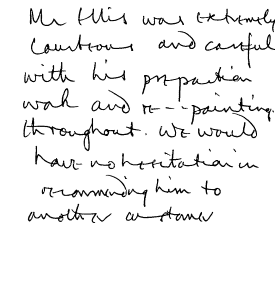 Mr Ellis was extremely
courteous and careful
with his prepartion
work and re---painting
throughout. We would
have no hesitation in
recommending him to
another customer